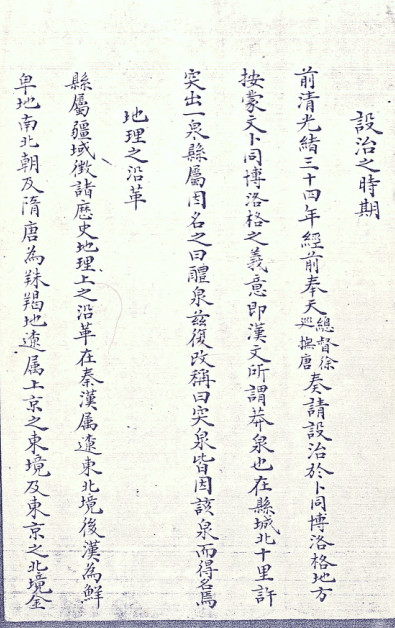 設治之時期
前清光緒三十四年經前奉天總督徐巡撫唐奏請設治於卜同博洛格地方
按蒙文卜同博洛格之義意即漢文所謂莽泉也在縣城北十里許
突出一泉縣屬因名之曰醴泉茲復改稱曰突泉皆因該泉而得名焉
地理之沿革
縣屬疆域徵諸歷史地理上之沿革在秦漢属遼東北境後漢為鮮
卑地南北朝及隋唐為靺羯地遼属上京之東境及東京之北境金